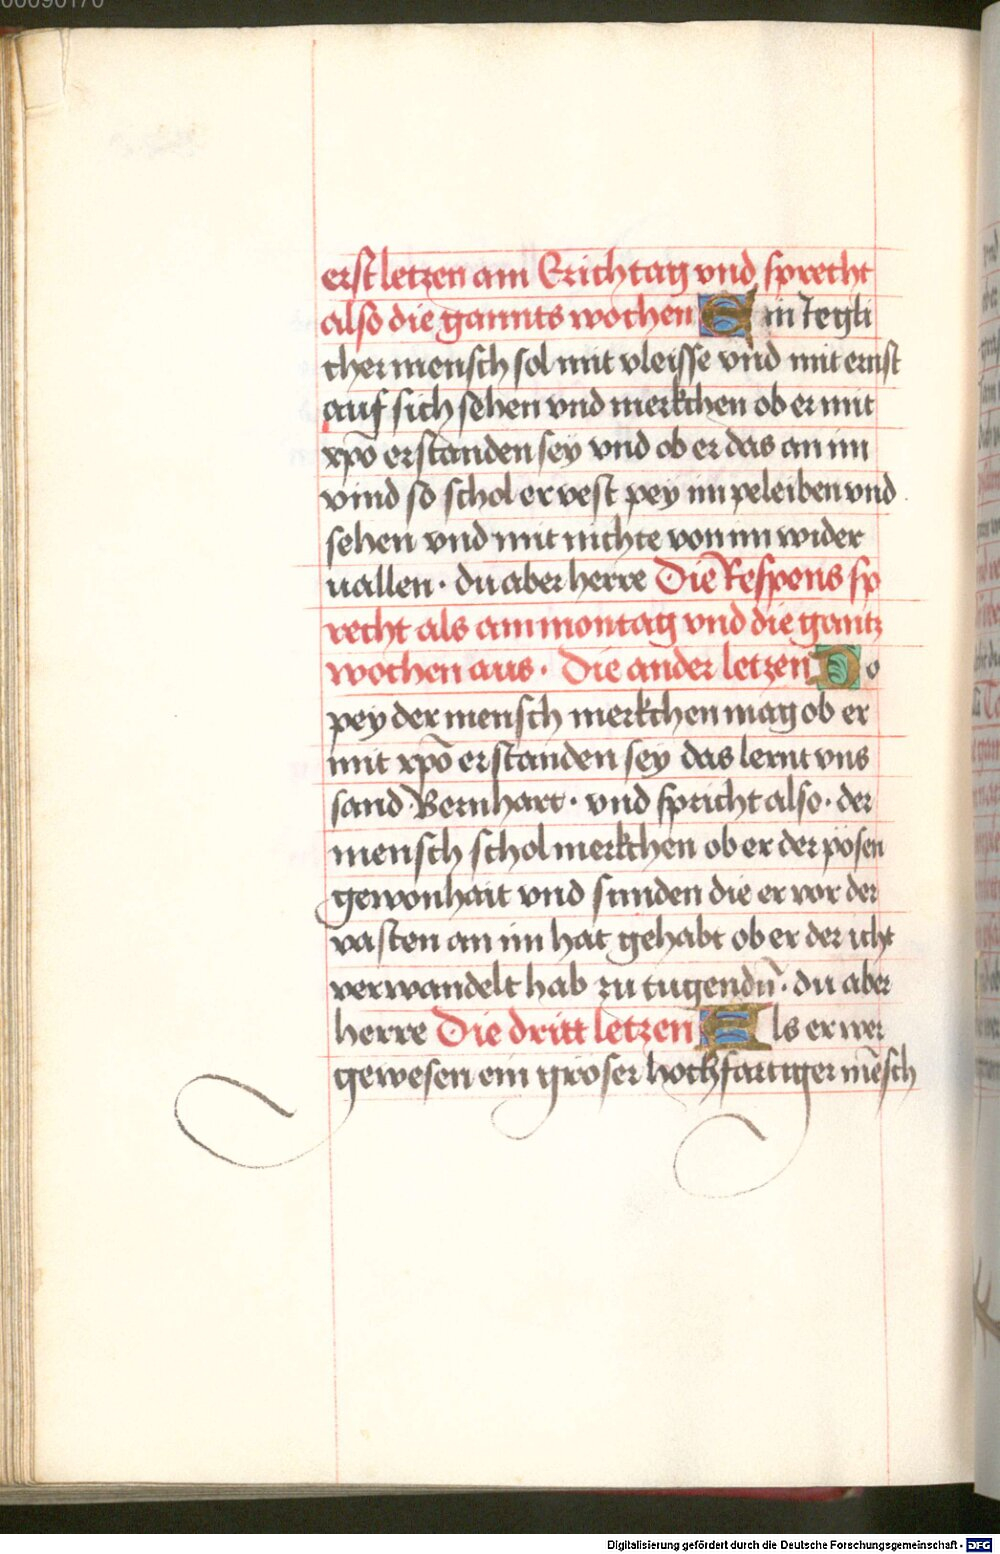 00090170
erst letzen am Erichtag vnd sprecht
also die gannts wochen Ein Iegli
cher mensch sol mit vleisse vnd mit ernst
auf sich sehen vnd merkchen ob er mit
xpō erstanden sey vnd ob er das an im
vind so schol er vest pey im peleiben vnd
sehen vnd mit nichte von im wider
uallen · du aber herre Die Respons sp
recht als am montag vnd die gantz
wochen aus · Die ander letzen Do
pey der mensch merkchen mag ob er
mit xpō erstanden sey das lernt vns
sand Bernhart · vnd spricht also · der
mensch schol merkchen ob er der pösen
gewonhait vnd sunden die er vor der
vasten an im hat gehabt ob er der icht
verwandelt hab zu tugendn̄ · du aber
herre Die dritt letzen Als er wer
gewesen ein groser hochfartiger mēsch
Digitalisierung gefördert durch die Deutsche Forschungsgemeinschaft - DFG